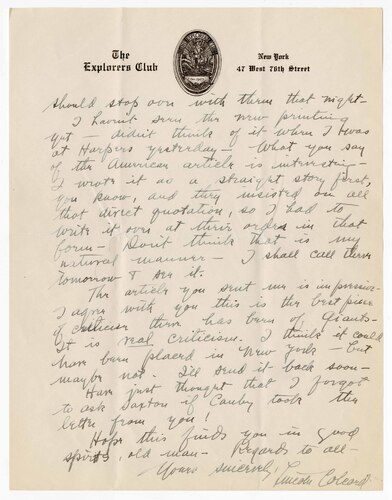 The
Explorers Club
New York
47 West 76th Street
should stop over with them that night-
I haven't seen the new printing
yet — didn't think of it when I was
at Harpers yesterday — What you say
of the American article is interesting—
I wrote it as a straight story first,
you know, and they insisted on all
that direct quotation, so I had to
write it over at their orders in that
form — Don't think that is my
natural manner — I shall call them
tomorrow & see it.
The article you sent me is impressive-
I agree with you this is the best piece
of criticism there has been of Giants-
It is real criticism. I think it could
have been placed in New York — but
maybe not. I'll send it back soon—
Have just thought that I forgot
to ask Saxton if Canby took the
letter from you!
Hope this finds you in good
spirits, old man — Regards to all—
Yours sincerely, Lincoln Colcord